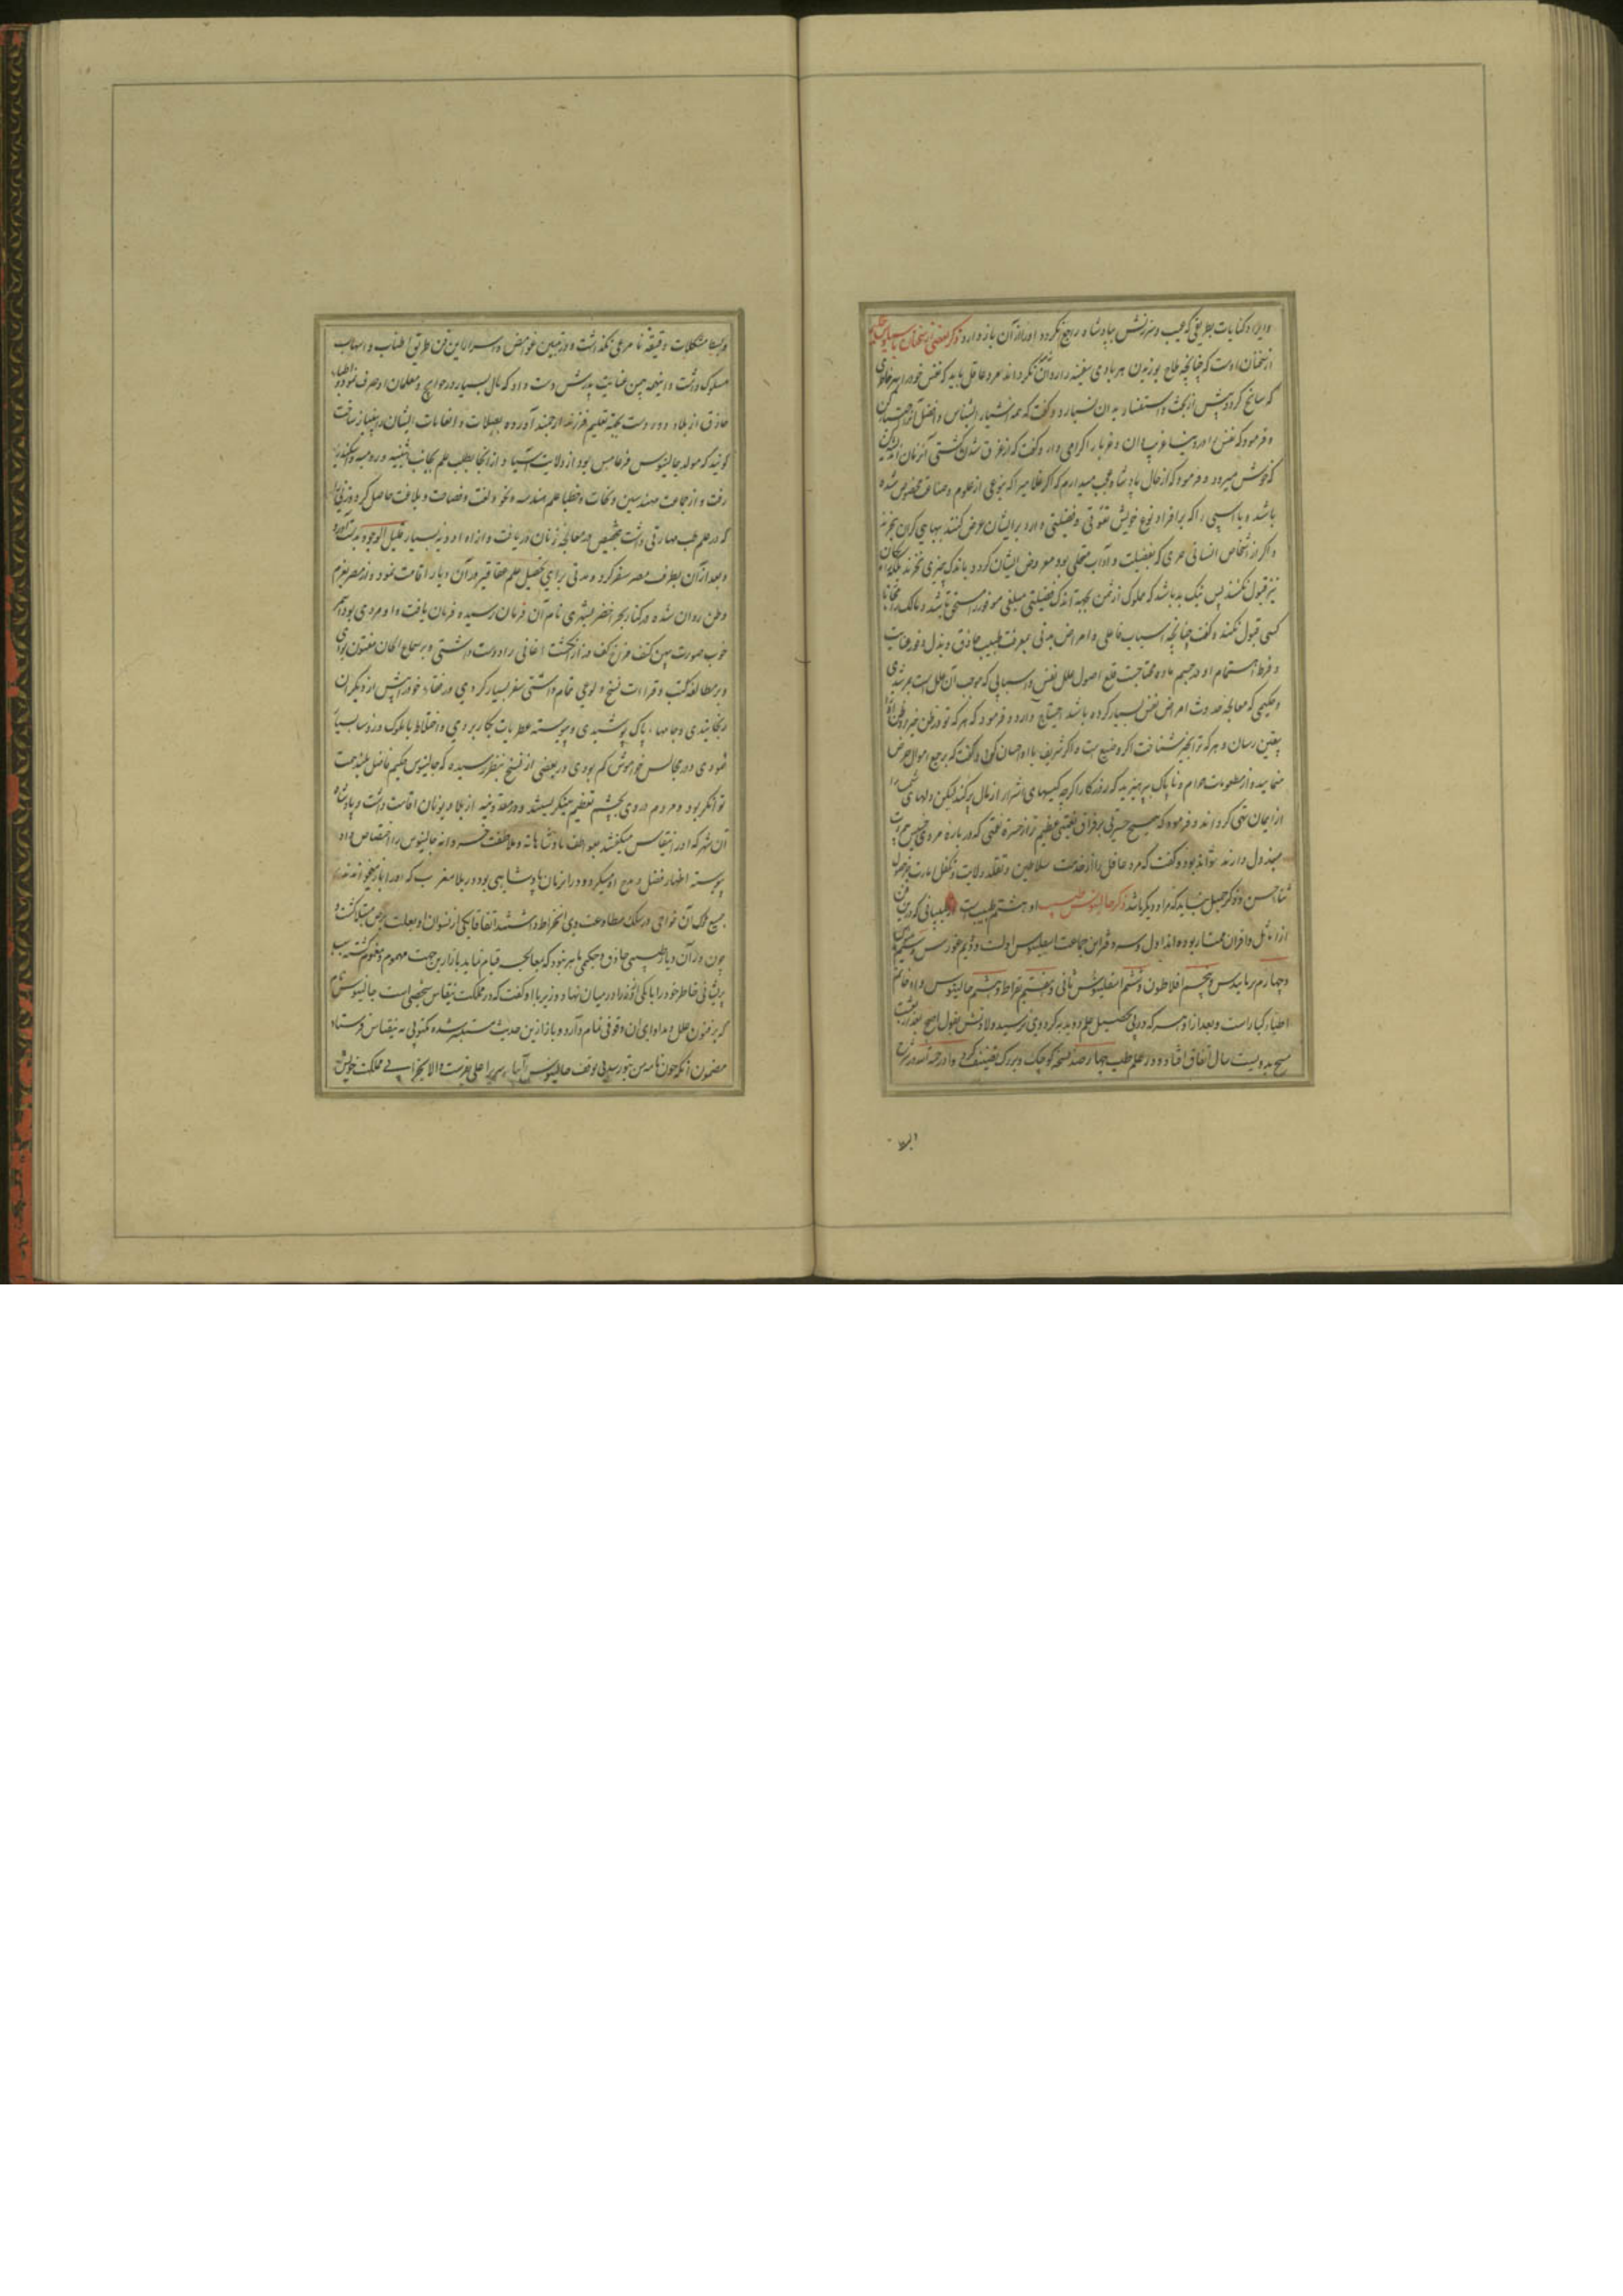 و ایراد کنایات بطریقی که عیب و سرزنش بپادشاه راجع نکردد او را از آن باز دارد ذکر بعضی از سخنان
از سخنان اوست که چنانچه ملاح بوزیدن هر بادی سفینه را روان نکرداند مرد عاقل باید که نفس خود را بهر خاطری
که سانح کردد پیش از بحث و استفسار بدان نسپارد و کفت که
و فرمود که نفس خود را غریب دان و غربا را کرامی دار و کفت که از غرق شدن کشتی آنزمان
که خوش میرود و فرمود که از حال پادشاه عجب میدارم که اکر غلامیرا که بنوعی از علوم و صناعت مخصوص شده
باشد و یا اسپی را که بر افراد نوع خویش تفوقی و فضیلتی دارد بر ایشان عرض کنند ببهای کران بخرند
و اکر از اشخاص انسانی حری که بفضیلت و آداب متحلی بود معروض ایشان کردد باندک چیزی نخرند بلکه
نیز قبول نکنند پس نیک بد باشد که مملوک از ثمن بجهة اندک فضیلتی مبلغی موفور را مستحق باشد و مالک را
کسی قبول نکند و کفت چنانچه اسباب فاعلی و امراض بدنی بمعرفت طبیب حاذق و بذل وفور عنایت
و فرط اهتمام او در حسم ماده محتاجست قلع اصول علل نفس و اسبابی که موجب آن علل است بمرشدی
و حکیمی که معالجه حدوث امراض نفس بسیار کرده باشد احتیاج دارد و فرمود که هر که تو در ظن خیر
بیقین رسان و هر که ترا بخیر شناخت اکر وضیع است و اکر شریف با او احسان کن و کفت که بر جمع اموال حرص
منمایید و از مطعومات حرام و ناپاک بپرهیزید که روزکار اکرچه کیسهای اشرار از مال پر کند لیکن دلهای
از ایمان تهی کرداند و فرمود که هیچ حسرتی بر فراق نعمتی عظیم تر از حسرة نعمتی که در باره مردی خسیس
مبذول دارند نتواند بود و کفت که مرد عاقل باید از خدمت سلاطین و تقلد ولایت و تکفل امارت بجز حصول
ثناء حسن و ذکر جمیل نباید که مراد دیکر باشد ذکر جالینوس طبیب او هشتم طبیب است از طبیبانی که درین فن
از امثال و اقران ممتاز بوده اند اول و سر دفتر این جماعت اسقلبیوس اولست دوم غورس و سیم مینس
و چهارم برمانیدس و پنجم افلاطون و ششم اسقلبیوس ثانی و هفتم بقراط و هشتم جالینوس و او خاتم
اطباء کبار است و بعد از او هر که در پی تحصیل علم دوید بکرد وی نرسید ولادتش بقول اصح بعد از بعثت
مسیح بدویست سال اتفاق افتاد و در علم طب چهار صد نسخه کوچک و بزرک تصنیف کرد و او در شرح
البلا
و بسط مشکلات دقیقه نا مرعی نکذاشت و در تبیین غوامض و اسرار این فن طریق اطناب و اسهاب
مسلوک داشت و اینهمه بیمن عنایت پدرش دست داد که مال بسیار در حوایج و معلمان او صرف نمود و اطباء
حاذق از بلاد دور دست بجهة تعلیم فرزند ارجمند آورده بصلات و انعامات ایشان را بی نیاز ساخت
کویند که مولد جالینوس فرغامس بود از ولایت آسیا و از آنجا بطلب علم بجانب اثینیه و رومیه و اسکندریه
رفت و از جماعت مهندسین و نحات و خطبا علم هندسه و نحو و لغت و فصاحت و بلاغت حاصل کرد و زنی را
که در علم طب مهارتی داشت بتخصیص در معالجه زنان دریافت و از او ادویه بسیار قلیل الوجود بدست آورد
و بعد از آن بطرف مصر سفر کرد و مدتی برای تحصیل علم عقاقیر در آن دیار اقامت نمود و از مصر بعزم
وطن روان شده در کنار بحر اخضر بشهری نام آن فرمان رسیده فرمان یافت و او مردی بود اسمر
خوب صورت پهن کتف فراخ کف دراز انکشت اغانی را دوست داشتی و بر سماع الحان مفتون بودی
و بر مطالعه کتب و قرائت نسخ ولوعی تمام داشتی سفر بسیار کردی و در خنده خود را پیش از دیکران
نرنجانیدی و جامهاء پاک پوشیدی و پیوسته عطریات بکار بردی و اختلاط با ملوک و رؤسا بسیار
نمودی و در مجالس خاموش کم بودی در بعضی از نسخ بنظر رسیده که جالینوس حکیم فاضل بلند همت
توانکر بود و مردم در وی بچشم تعظیم مینکریستند و در مقدونیه از بلاد یونان اقامت داشت و پادشاه
آن شهر که او را نیقاس میکفتند بعواطف پادشاهانه و ملاطفت خسروانه جالینوس را اختصاص داد
پیوسته اظهار فضل و مدح او میکرد و در آنزمان پادشاهی بود در بلاد مغرب که او را
جمیع ملوک آن نواحی در سلک مطاوعت وی انخراط داشتند اتفاقا یکی از نسوان او بعلت برص مبتلا کشت و
چون در آن دیار طبیبی حاذق و حکیمی ماهر نبود که بمعالجه قیام نماید پادشاه ازین جهت مهموم و مغموم کشته سبب
پریشانی خاطر خود را با یکی از وزرا در میان نهاد وزیر با او کفت که در مملکت نیقاس شخصی است جالینوس نام
که بر فنون علل و مداوای آن وقوفی تمام دارد و پادشاه ازین حدیث مستبشر شده مکتوبی به نیقاس فرستاد
مضمون آنکه چون نامه من بتو رسد بی توقف جالینوس را بسریر اعلی بفرست و الا بخرابی مملکت خویش